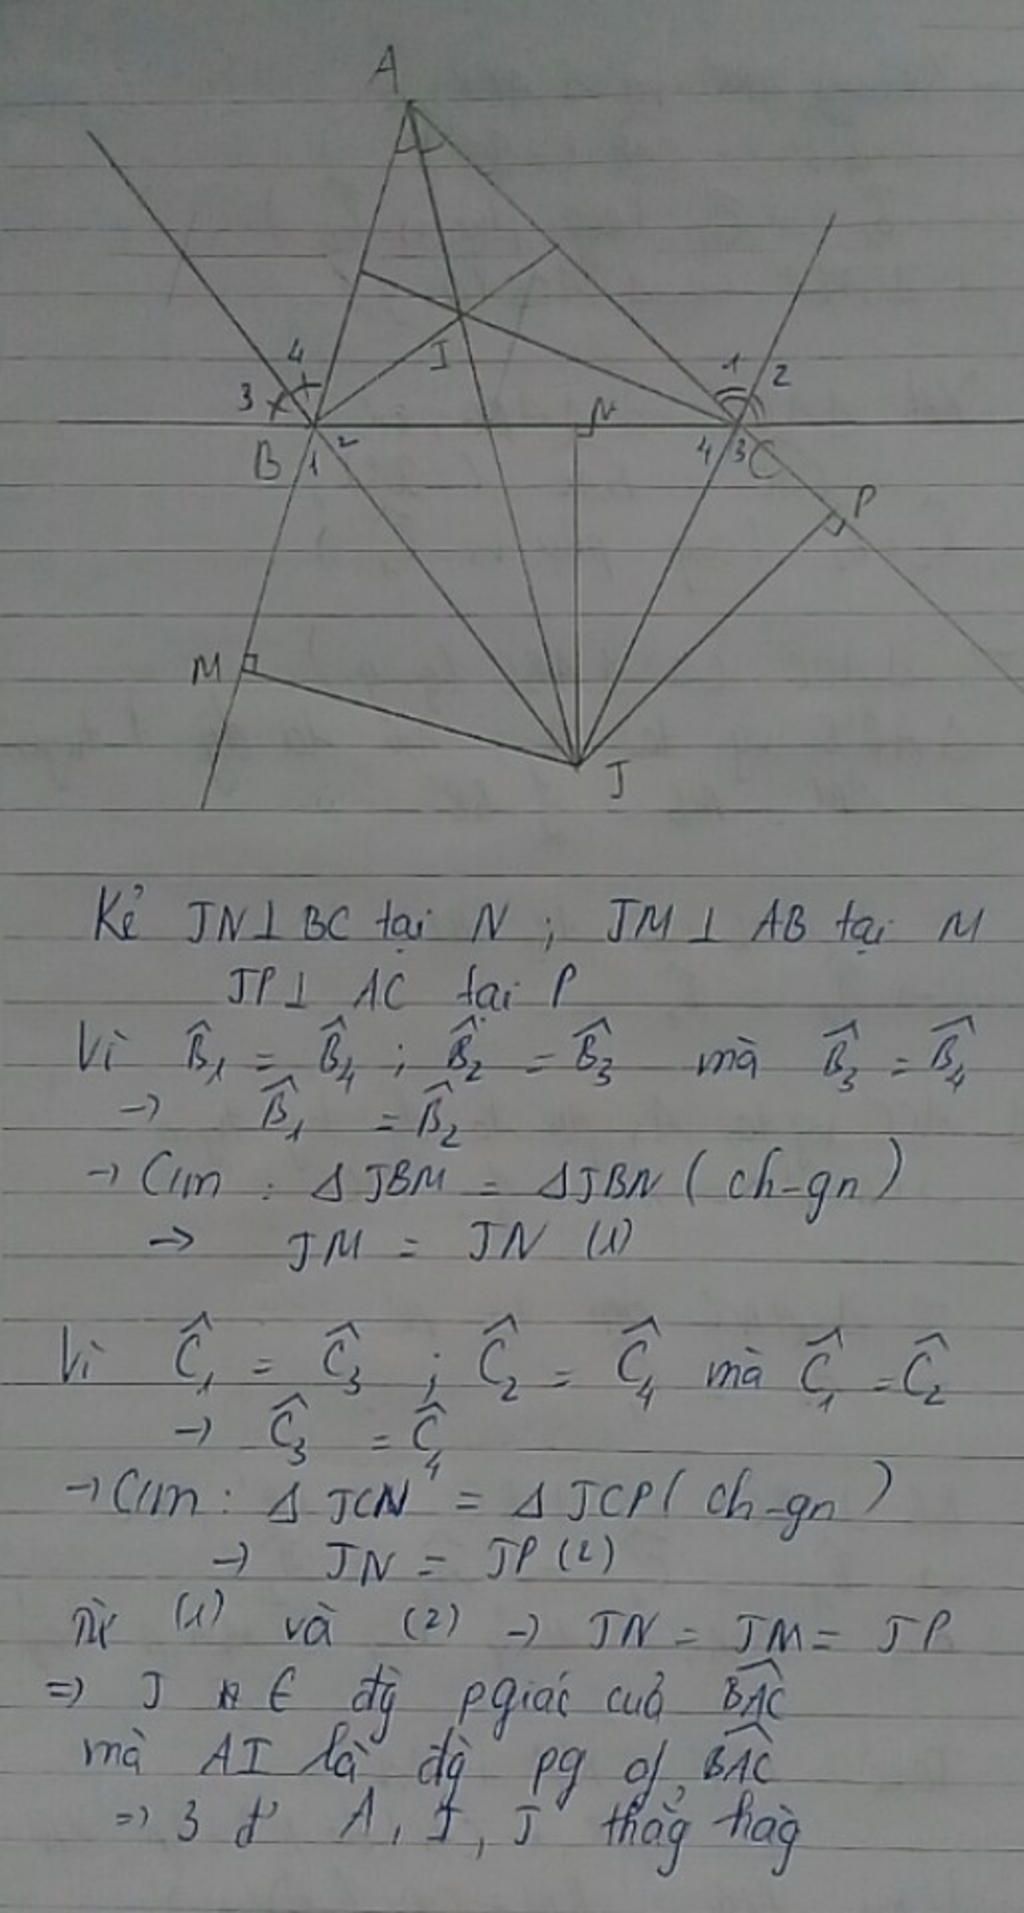 A
4
3
I
1
2
N
B
1
2
4
3
C
P
M
J
Kẻ JN⊥BC tại N ; JM⊥ AB tại M
JP⊥ AC tại P
Vì B̂₁ = B̂₄ ; B̂₂ = B̂₃ mà B̂₃ = B̂₄
→ B̂₁ = B̂₂
→ C/m : Δ JBM = ΔJBN ( ch-gn )
→ JM = JN (1)
Vì Ĉ₁ = Ĉ₃ ; Ĉ₂ = Ĉ₄ mà Ĉ₁ = Ĉ₂
→ Ĉ₃ = Ĉ₄
→ C/m : Δ JCN = Δ JCP ( ch-gn )
→ JN = JP (2)
Từ (1) và (2) → JN = JM = JP
=> J ∈ đg̀ pgiác của BAC^
mà AI là đg̀ pg of BAC^
=> 3 đ' A, I, J thảg hàg